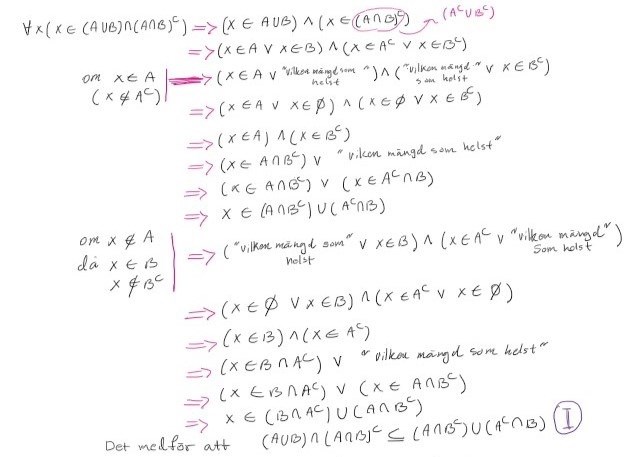 ∀x(x ∈ (A∪B)∩(A∩B)ᶜ) => (x ∈ A∪B) ∧ (x ∈ (A∩B)ᶜ) (Aᶜ∪Bᶜ)
=> (x ∈ A ∨ x ∈ B) ∧ (x ∈ Aᶜ ∨ x ∈ Bᶜ)
om x ∈ A => (x ∈ A ∨ "vilken mängd som helst") ∧ ("vilken mängd" som helst ∨ x ∈ Bᶜ)
(x ∉ Aᶜ)
=> (x ∈ A ∨ x ∈ ∅) ∧ (x ∈ ∅ ∨ x ∈ Bᶜ)
=> (x ∈ A) ∧ (x ∈ Bᶜ)
=> (x ∈ A∩Bᶜ) ∨ "vilken mängd som helst"
=> (x ∈ A∩Bᶜ) ∨ (x ∈ Aᶜ∩B)
=> x ∈ (A∩Bᶜ)∪(Aᶜ∩B)
om x ∉ A
då x ∈ B => ("vilken mängd som" helst ∨ x ∈ B) ∧ (x ∈ Aᶜ ∨ "vilken mängd" som helst)
x ∉ Bᶜ
=> (x ∈ ∅ ∨ x ∈ B) ∧ (x ∈ Aᶜ ∨ x ∈ ∅)
=> (x ∈ B) ∧ (x ∈ Aᶜ)
=> (x ∈ B∩Aᶜ) ∨ "vilken mängd som helst"
=> (x ∈ B∩Aᶜ) ∨ (x ∈ A∩Bᶜ)
=> x ∈ (B∩Aᶜ)∪(A∩Bᶜ)
Det medför att (A∪B)∩(A∩B)ᶜ ⊆ (A∩Bᶜ)∪(Aᶜ∩B) I